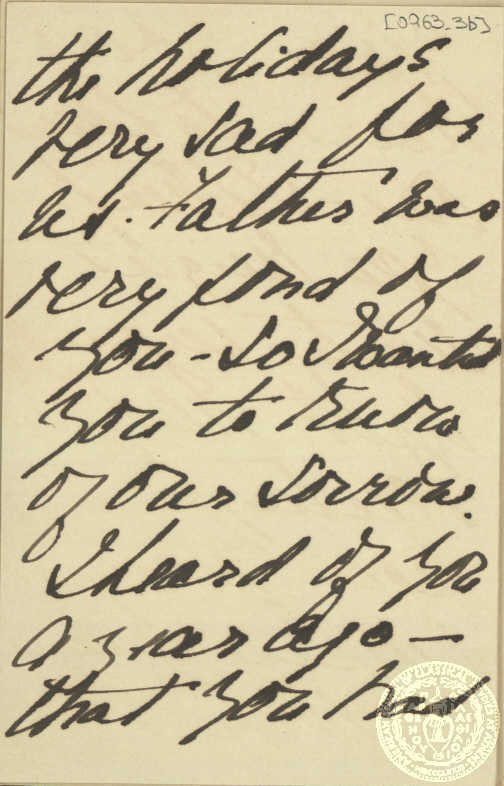 [0963_3b]
the holidays
very sad for
us. Father was
very fond of
you - so I wanted
you to know
of our sorrow.
I heard of you
a year ago -
that you had